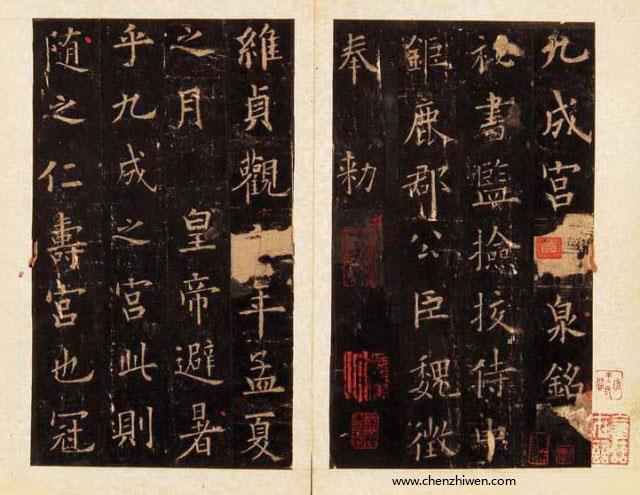 九成宫 泉銘
祕書監撿挍侍中
鉅鹿郡公臣魏徵
奉 勑
維貞觀 年孟夏
之月 皇帝避暑
乎九成之宮此則
随之仁壽宮也冠
www.chenzhiwen.com